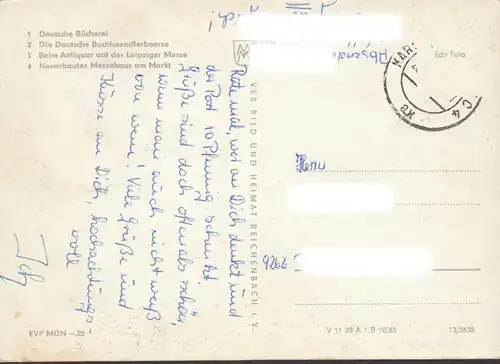 1 Deutsche Bücherei
2 Die Deutsche Buchhaendlerboerse
3 Beim Antiquar auf der Leipziger Messe
4 Neuerbautes Messehaus am Markt
Echt Foto
Absende
KAR
C 4
Rate mal, wer an Dich denkt und
der Post 10 Pfennig schenkt
Grüße sind doch oftmals schön,
wenn man auch nicht weiß
von wem! Viele Grüße und
Küsse an Dich, hochachtungs
voll
Ich
VEB BILD UND HEIMAT REICHENBACH I. V.
Herrn
9264
EVP MDN -,25
V 11 28 A 1 B 10/65
13/2638